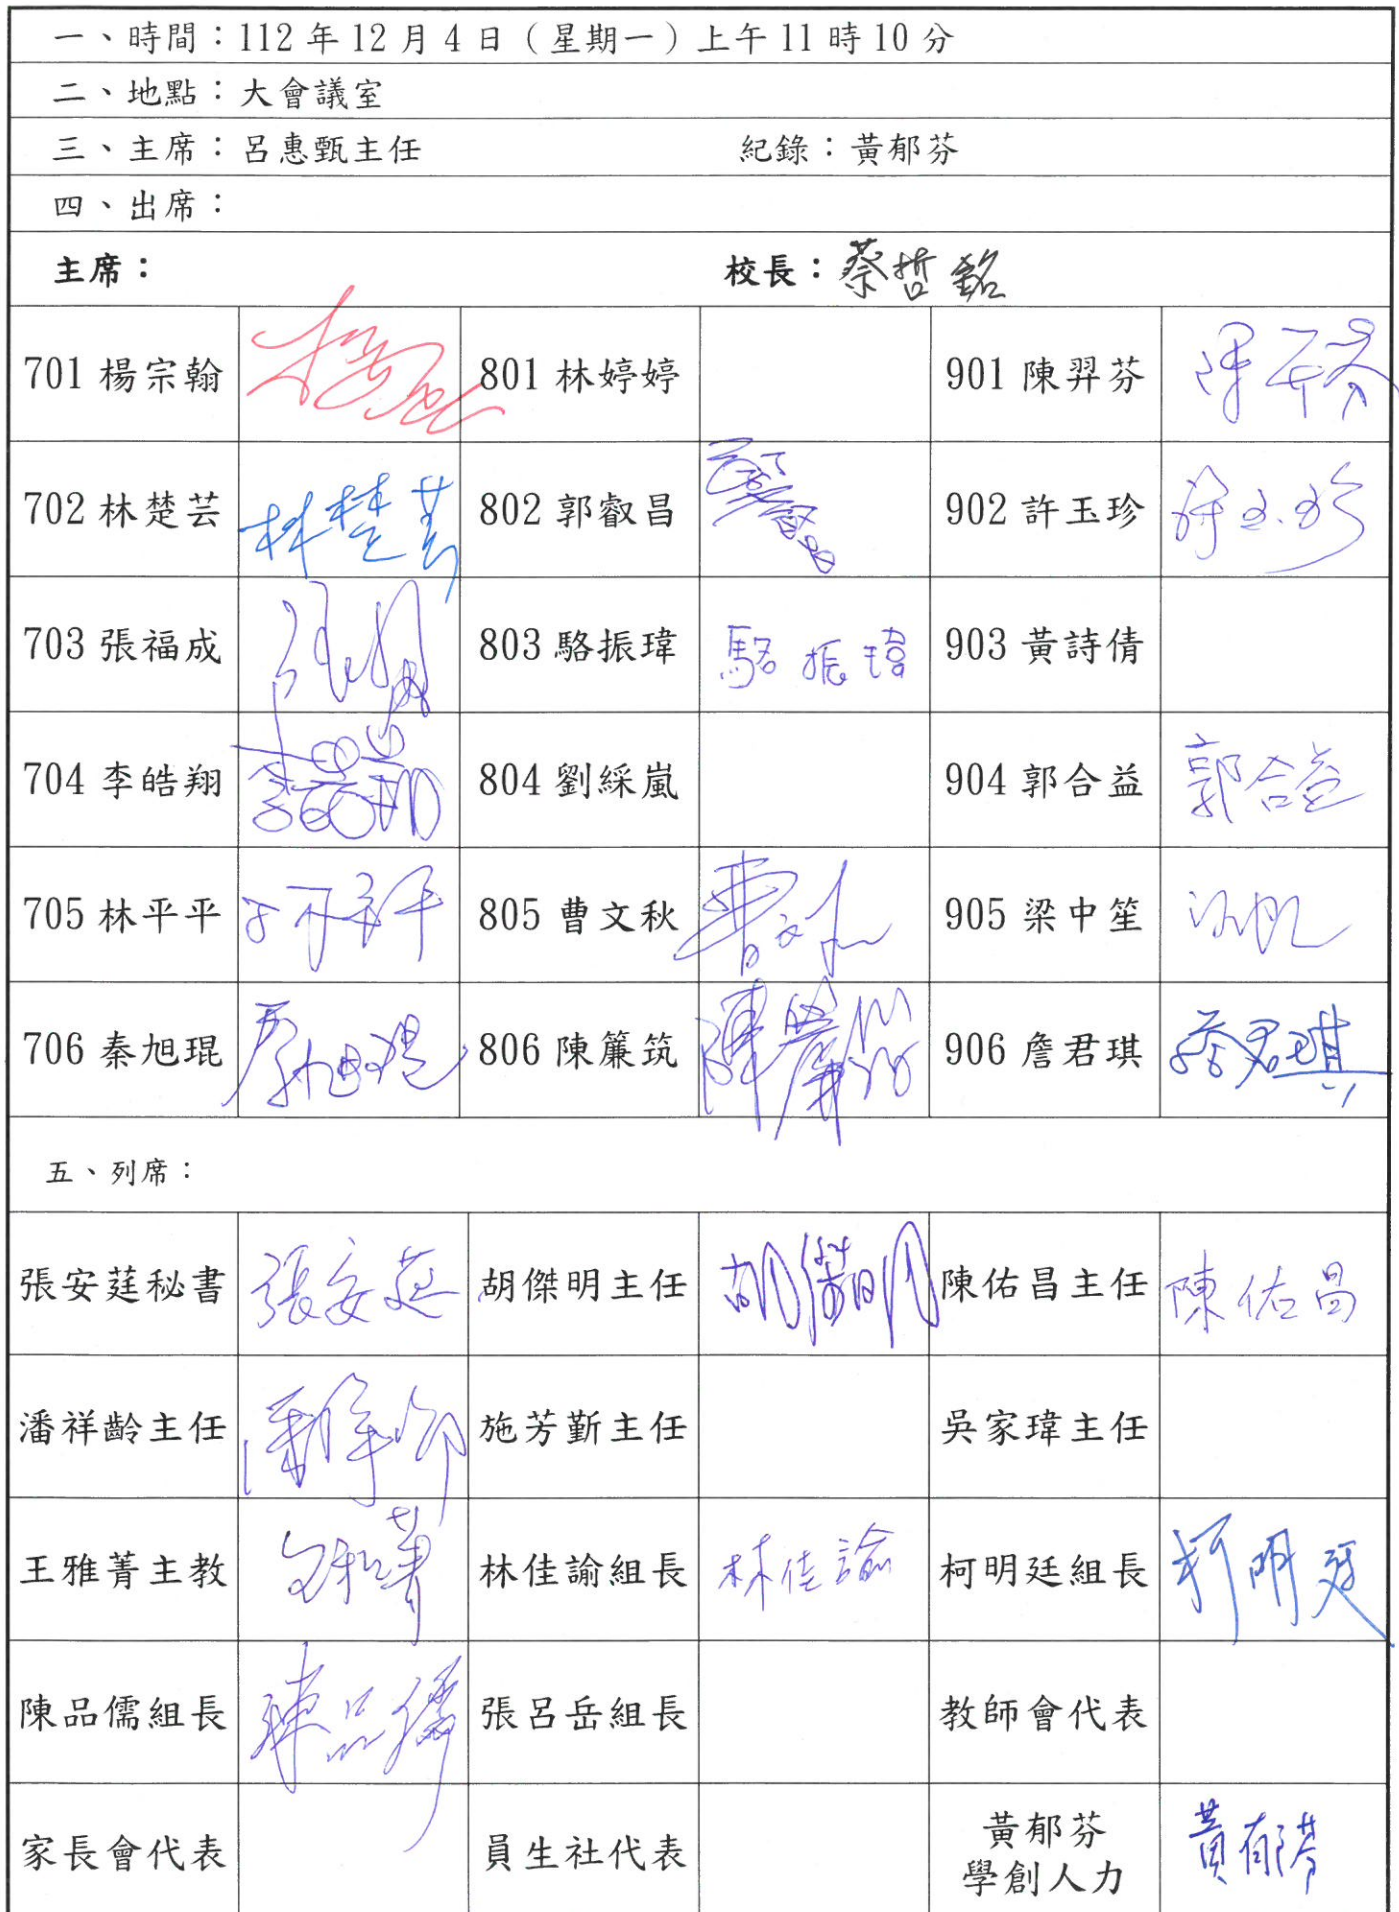 一、時間：112年12月4日（星期一）上午11時10分
二、地點：大會議室
三、主席：呂惠甄主任 紀錄：黃郁芬
四、出席：
主席： 校長：蔡哲銘
701 楊宗翰 801 林婷婷 901 陳羿芬 陳羿芬
702 林楚芸 林楚芸 802 郭叡昌 902 許玉珍 許玉珍
703 張福成 803 駱振瑋 駱振瑋 903 黃詩倩
704 李皓翔 李皓翔 804 劉綵嵐 904 郭合益 郭合益
705 林平平 805 曹文秋 曹文秋 905 梁中笙
706 秦旭琨 806 陳簾筑 906 詹君琪
五、列席：
張安莛秘書 張安莛 胡傑明主任 胡傑明 陳佑昌主任 陳佑昌
潘祥齡主任 施芳勤主任 吳家瑋主任
王雅菁主教 林佳諭組長 林佳諭 柯明廷組長 柯明廷
陳品儒組長 陳品儒 張呂岳組長 教師會代表
家長會代表 員生社代表 黃郁芬 黃郁芬
學創人力